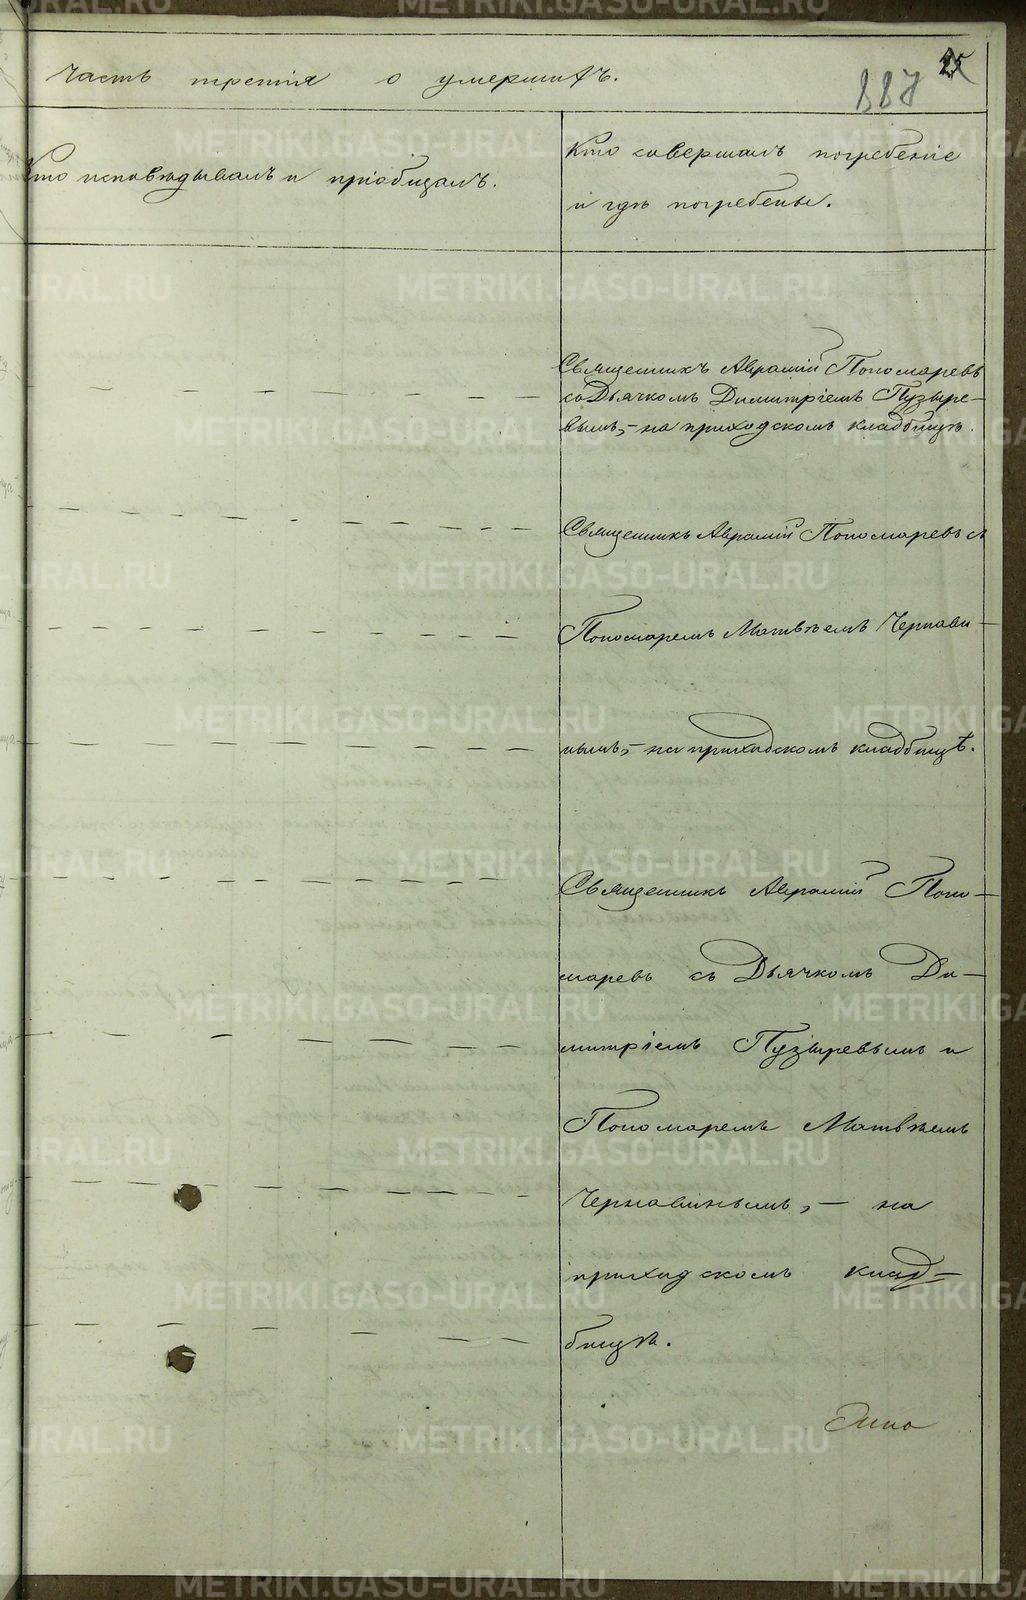 часть третія о умершихъ.
887
25
Кто исповѣдывалъ и пріобщалъ.
Кто совершалъ погребеніе
и гдѣ погребены.
Священникъ Аврамій Пономаревъ
со Дьячкомъ Димитріемъ Пузыре-
вымъ,- на приходскомъ кладбищѣ.
Священникъ Аврамій Пономаревъ съ
Пономаремъ Матвѣемъ Чернави-
нымъ,- на приходскомъ кладбищѣ.
Священникъ Аврамій Поно-
маревъ съ Дьячкомъ Ди-
митріемъ Пузыревымъ и
Пономаремъ Матвѣемъ
Чернавинымъ,- на
приходскомъ клад-
бищѣ.
METRIKI.GASO-URAL.RU